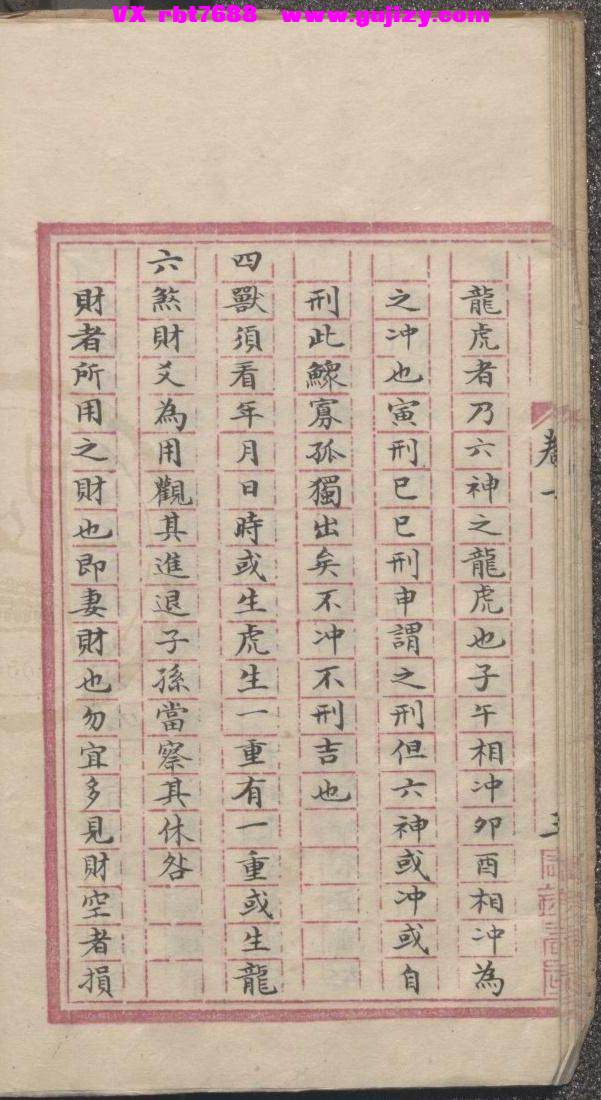 VX rbt7688 www.gujizy.com
龍虎者乃六神之龍虎也子午相冲卯酉相冲為
之冲也寅刑巳巳刑申謂之刑但六神或冲或自
刑此鰥寡孤獨出矣不冲不刑吉也
四獸須看年月日時或生虎生一重有一重或生龍
六煞財爻為用觀其進退子孫當察其休咎
財者所用之財也即妻財也勿宜多見財空者損